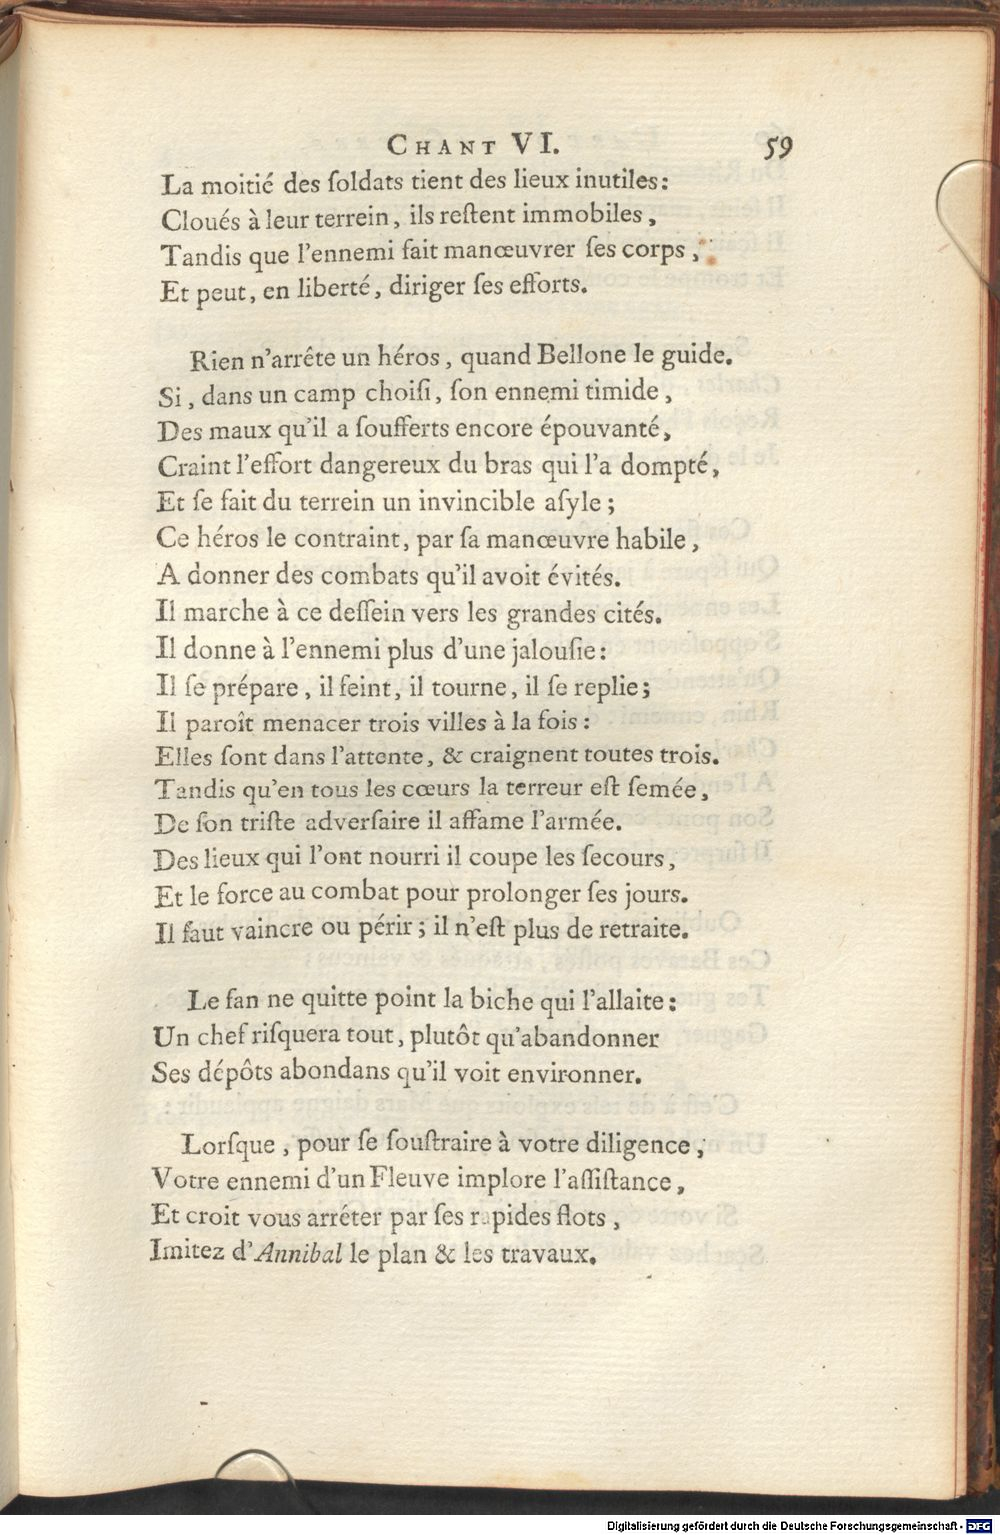 CHANT VI. 59
La moitié des ſoldats tient des lieux inutiles:
Cloués à leur terrein, ils reſtent immobiles,
Tandis que l'ennemi fait manœuvrer ſes corps,
Et peut, en liberté, diriger ſes efforts.
Rien n'arrête un héros, quand Bellone le guide.
Si, dans un camp choiſi, ſon ennemi timide,
Des maux qu'il a ſoufferts encore épouvanté,
Craint l'effort dangereux du bras qui l'a dompté,
Et ſe fait du terrein un invincible aſyle;
Ce héros le contraint, par ſa manœuvre habile,
A donner des combats qu'il avoit évités.
Il marche à ce deſſein vers les grandes cités.
Il donne à l'ennemi plus d'une jalouſie:
Il ſe prépare, il feint, il tourne, il ſe replie;
Il paroît menacer trois villes à la fois:
Elles ſont dans l'attente, & craignent toutes trois.
Tandis qu'en tous les cœurs la terreur eſt ſemée,
De ſon triſte adverſaire il affame l'armée.
Des lieux qui l'ont nourri il coupe les ſecours,
Et le force au combat pour prolonger ſes jours.
Il faut vaincre ou périr; il n'eſt plus de retraite.
Le fan ne quitte point la biche qui l'allaite:
Un chef riſquera tout, plutôt qu'abandonner
Ses dépôts abondans qu'il voit environner.
Lorſque, pour ſe ſouſtraire à votre diligence,
Votre ennemi d'un Fleuve implore l'aſſiſtance,
Et croit vous arréter par ſes rapides flots,
Imitez d'Annibal le plan & les travaux.
Digitalisierung gefördert durch die Deutsche Forschungsgemeinschaft - DFG